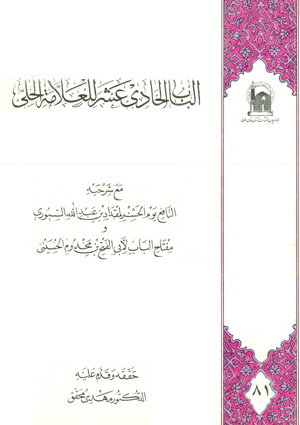 الباب الحادي عشر للعلامة الحلي
مع شرحيه
النافع يوم الحشر لمقداد بن عبدالله السيوري
و
مفتاح الباب لأبي الفتح بن مخدوم الحسيني
حققه وقدم عليه
الدكتور مهدي محقق
٨١